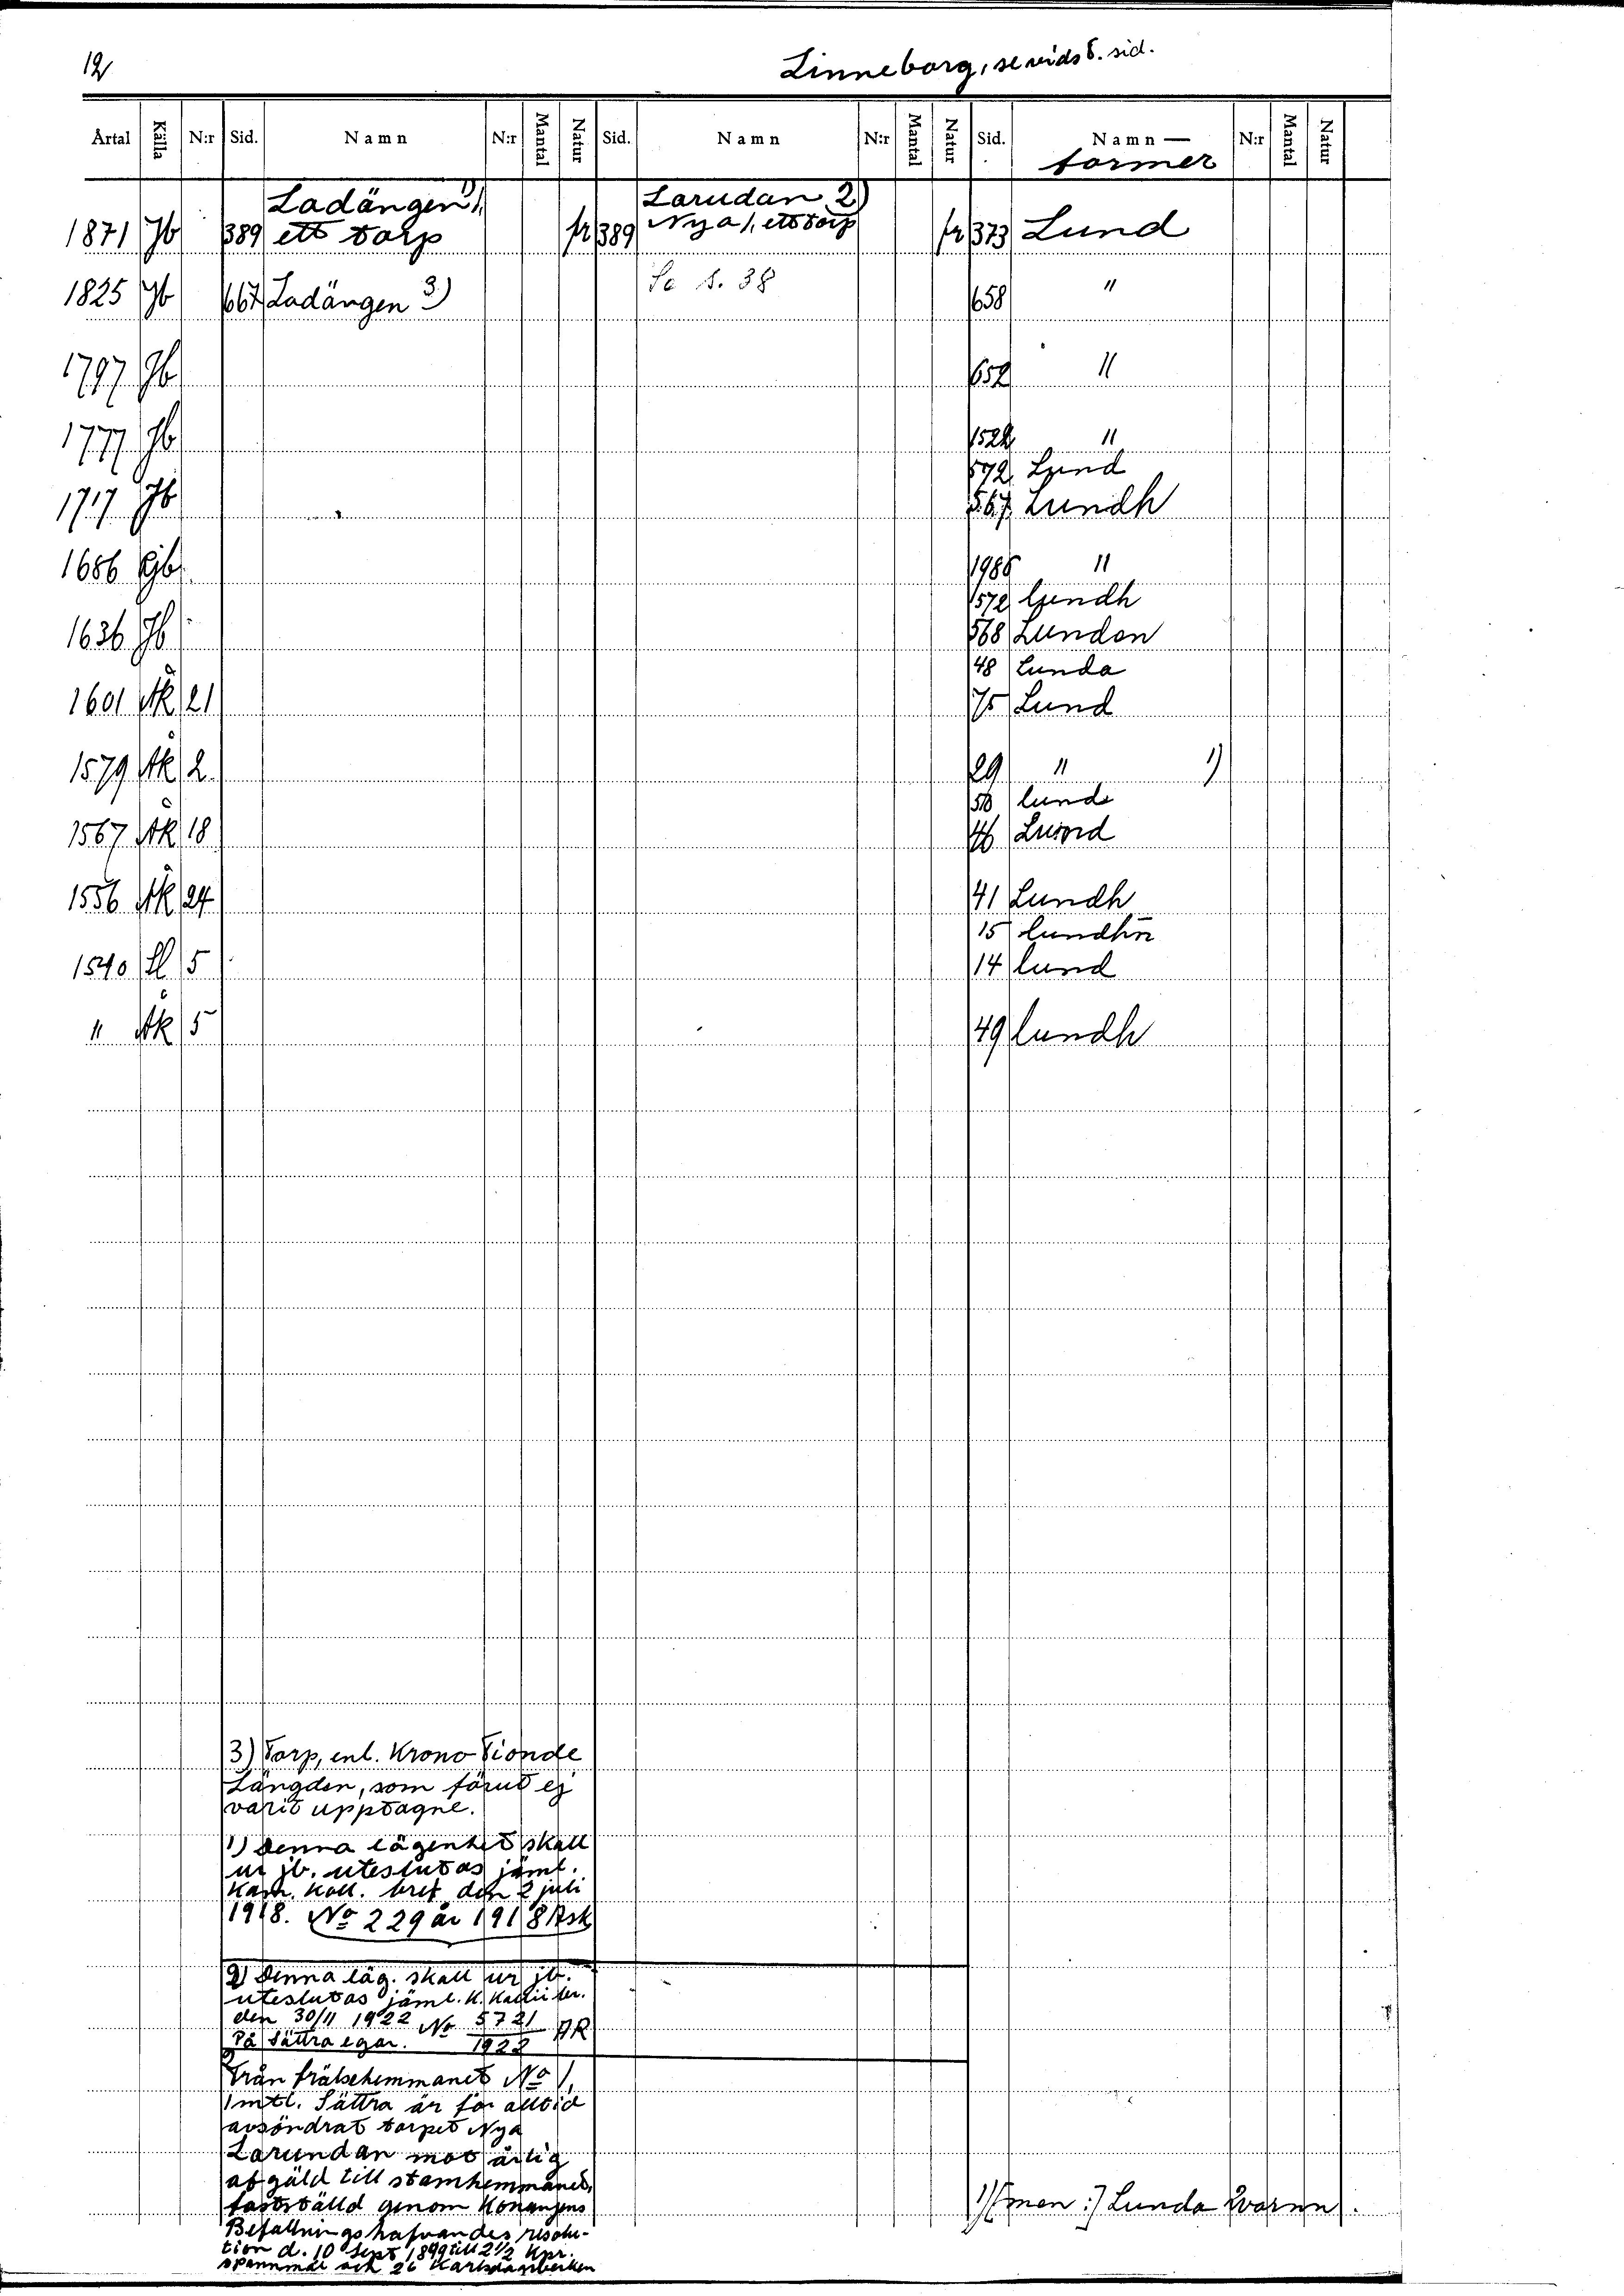 12
Linneborg, se vidst. sid.
Årtal Källa N:r Sid. Namn N:r Mantal Natur Sid. Namn N:r Mantal Natur Sid. Namn — N:r Mantal Natur
former
Ladängen 1) Larudan 2)
1871 Jb 389 ett torp fr 389 Nya /, ett torp fr 373 Lund
1825 Jb 667 Ladängen 3) Se s. 38 658 "
1797 Jb 652 "
1777 Jb 1522 "
572 Lund
1717 Jb 567 Lundh
1686 Jb 1986 "
572 Lundh
1636 Jb 568 Lunden
48 Lunda
1601 Åk 21 75 Lund
1579 Åk 2 29 " 1)
50 lund
1567 Åk 18 46 Lund
1556 Åk 24 41 Lundh
15 lundhn̄
1540 Ll 5 14 lund
" Åk 5 49 lundh
3) Torp, enl. Krono Tionde
Längden, som förut ej
varit upptagne.
1) Denna lägenhet skall
ur jb. uteslutas jäml.
Kam. Koll. bref den 2 juli
1918. No 229 år 1918 Ask
2) Denna läg. skall ur jb.
uteslutas jäml. K. Kollii br.
den 30/11 1922 No 5721/1922 AR
På Sättra egor.
Från frälsehemmanet No 1,
1 mtl. Sättra är för alltid
avsöndrat torpet Nya
Larundan mot årlig
afgäld till stamhemmanet,
fastställd genom Konungens
Befallningshafvandes resolu-
tion d. 10 Sept 1899 till 2 1/2 Kpr.
spannmål och 26 Karlsdagsverken
1) [men :] Lunda Qvarnn.